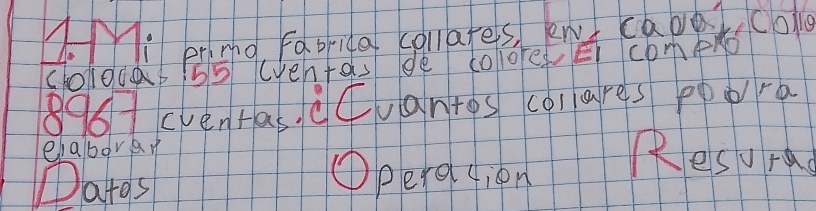 1.-Mi primo Fabrica collares, en cada colla
coloca 55 cuentas de colores. El compró
8967 cuentas. ¿Cuantos collares poodra
elaborar
Datos Operacion Resurad